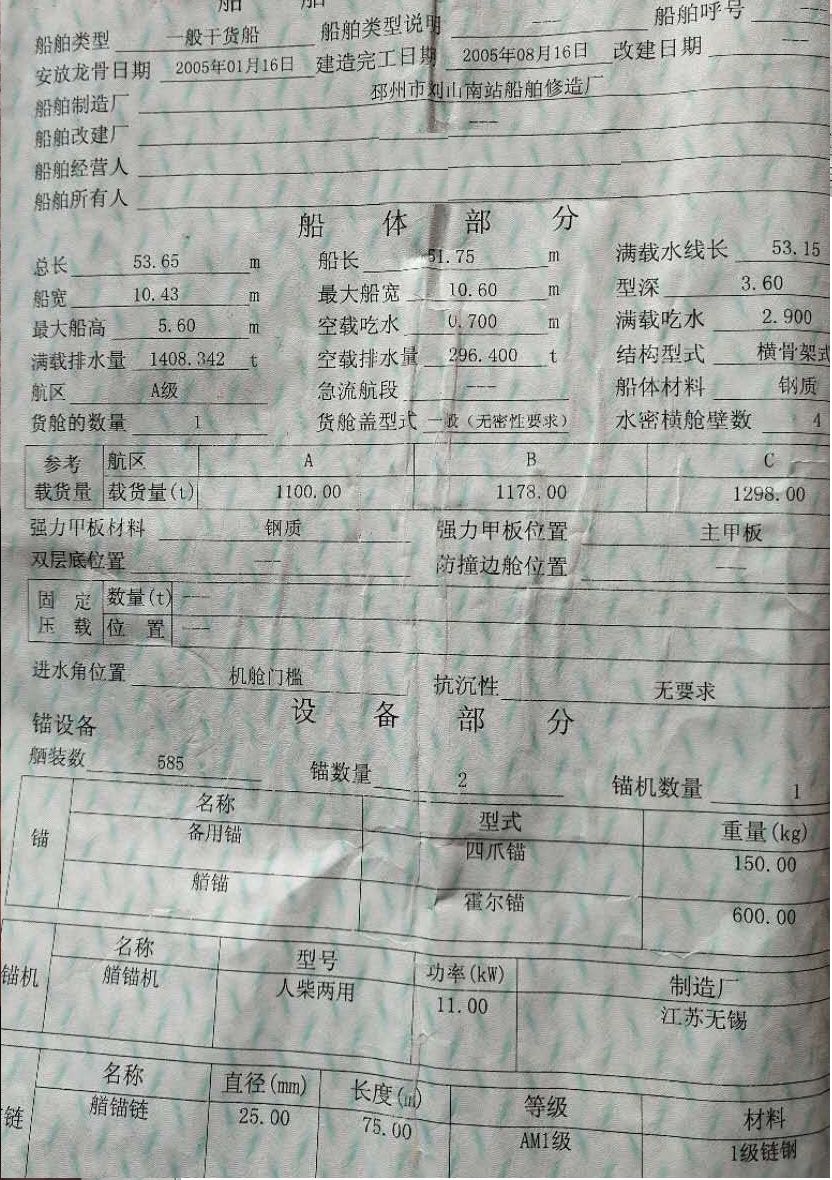 船舶类型 一般干货船 船舶类型说明 --- 船舶呼号 ---
安放龙骨日期 2005年01月16日 建造完工日期 2005年08月16日 改建日期 ---
船舶制造厂 邳州市刘山南站船舶修造厂
船舶改建厂 ---
船舶经营人
船舶所有人
船 体 部 分
总长 53.65 m 船长 51.75 m 满载水线长 53.15
船宽 10.43 m 最大船宽 10.60 m 型深 3.60
最大船高 5.60 m 空载吃水 0.700 m 满载吃水 2.900
满载排水量 1408.342 t 空载排水量 296.400 t 结构型式 横骨架式
航区 A级 急流航段 --- 船体材料 钢质
货舱的数量 1 货舱盖型式 一般(无密性要求) 水密横舱壁数 4
参考 航区 A B C
载货量 载货量(t) 1100.00 1178.00 1298.00
强力甲板材料 钢质 强力甲板位置 主甲板
双层底位置 --- 防撞边舱位置 ---
固 定 数量(t) ---
压 载 位 置 ---
进水角位置 机舱门槛 抗沉性 无要求
设 备 部 分
锚设备
舾装数 585 锚数量 2 锚机数量 1
锚 名称 型式 重量(kg)
备用锚 四爪锚 150.00
艏锚 霍尔锚 600.00
锚机 名称 型号 功率(kW) 制造厂
艏锚机 人柴两用 11.00 江苏无锡
链 名称 直径(mm) 长度(m) 等级 材料
艏锚链 25.00 75.00 AM1级 1级链钢